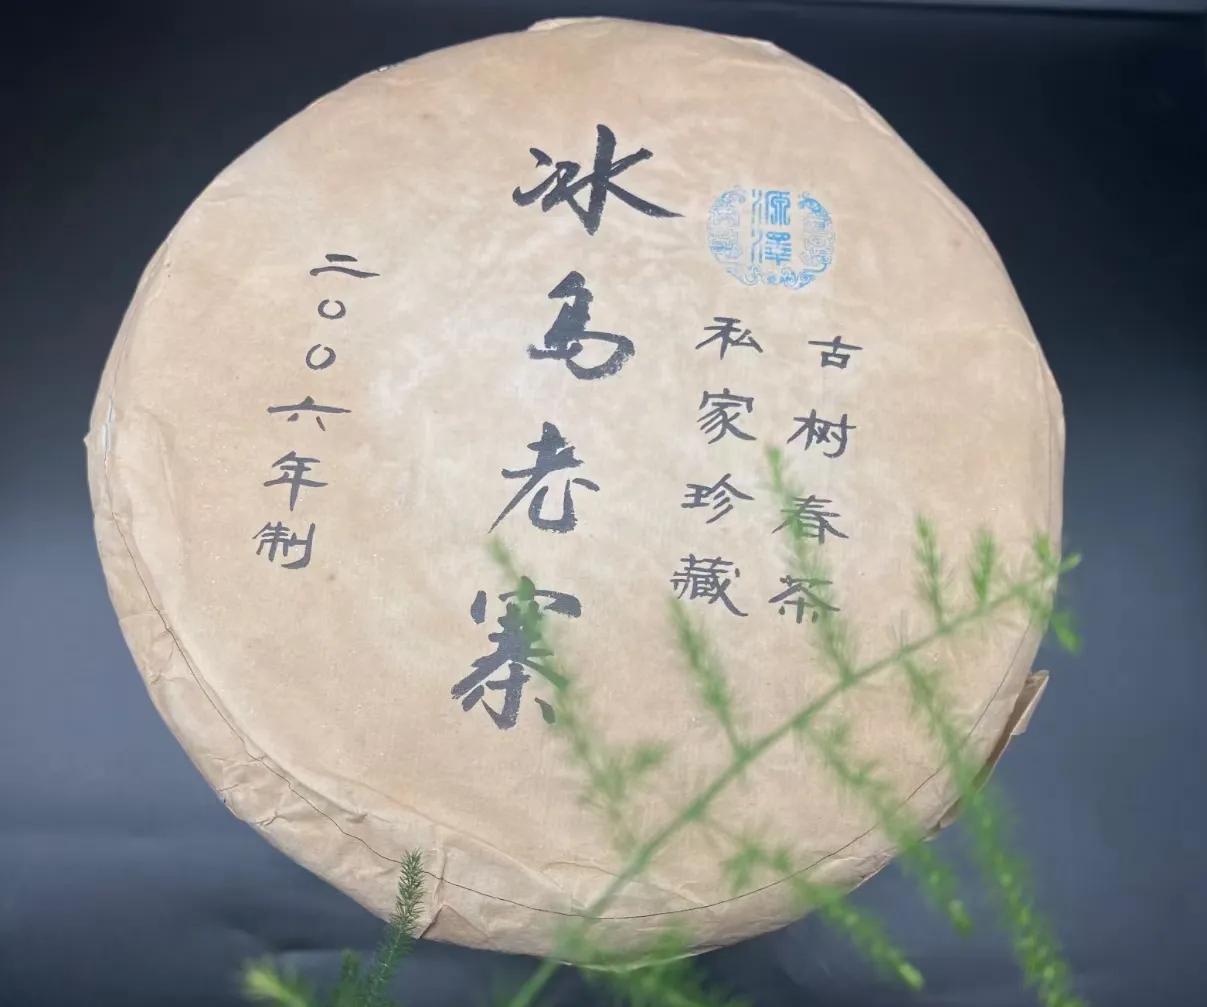 源澤
古树春茶
私家珍藏
冰島老寨
二〇〇六年制